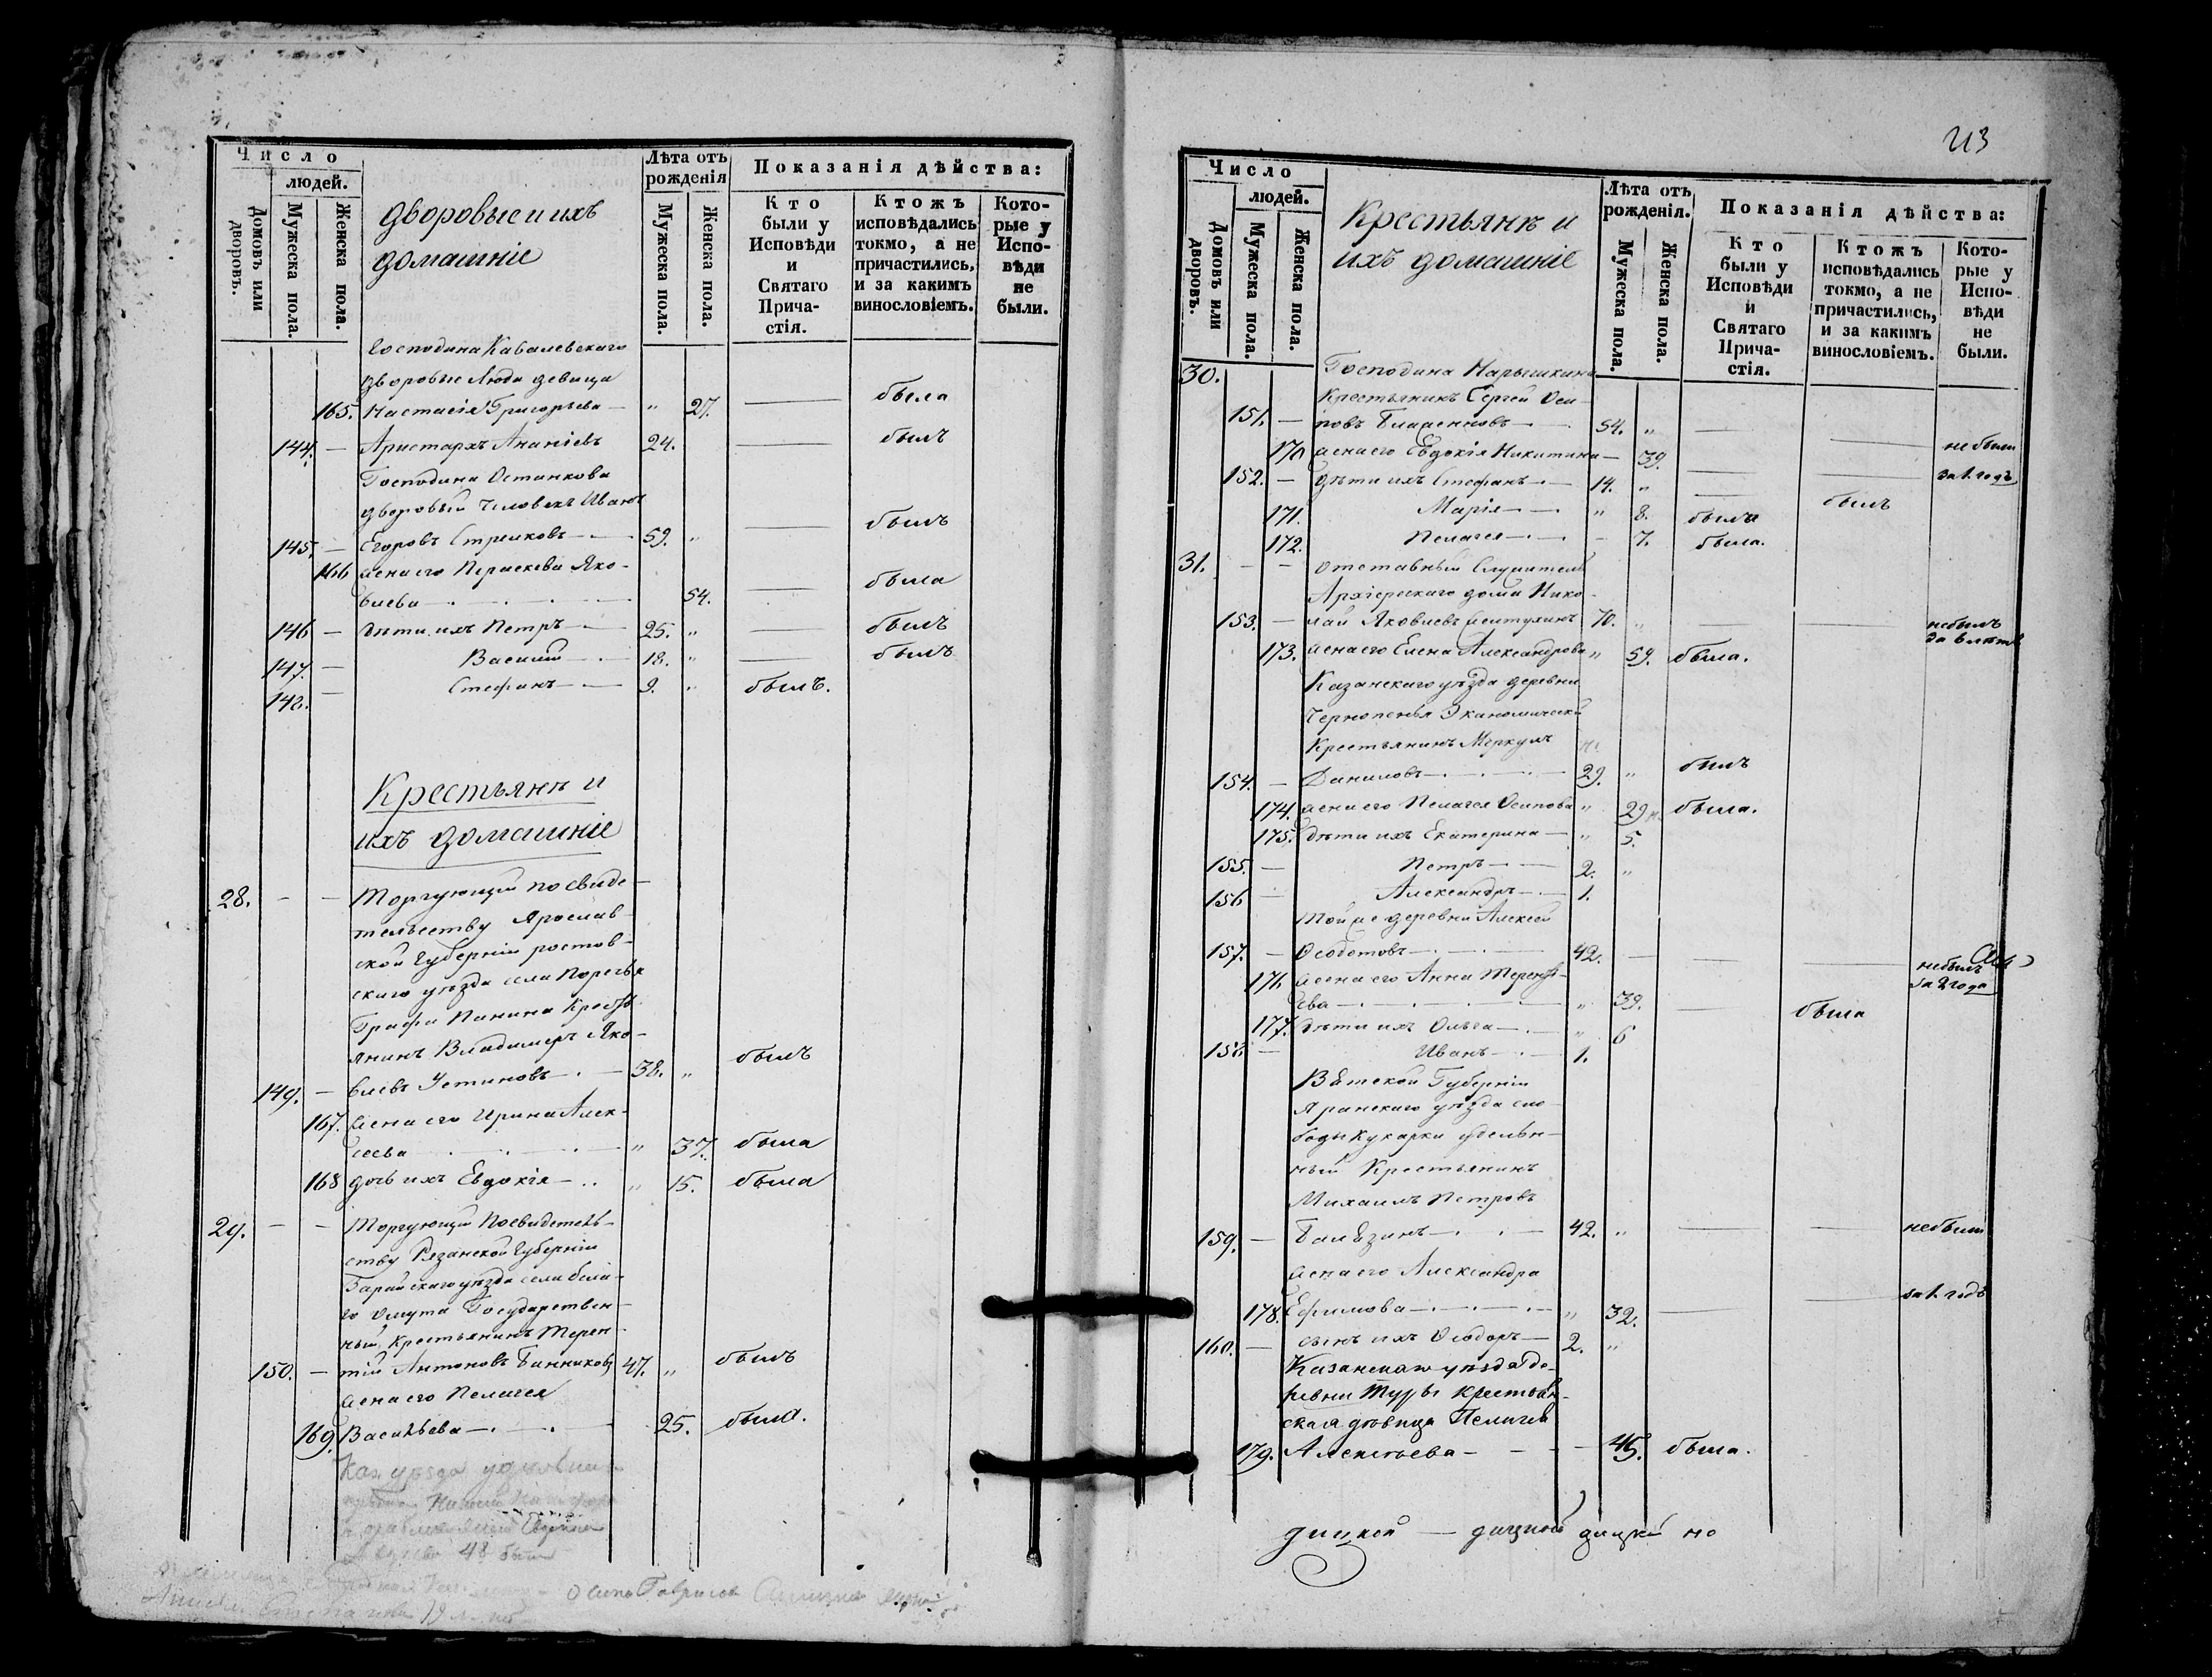 Число
людей.
Домовъ или дворовъ.
Мужеска пола.
Женска пола.
дворовые и ихъ
домашніе
Лѣта отъ рожденія
Мужеска пола.
Женска пола.
Показанія дѣйства:
Кто были у Исповѣди и Святаго Прича-стія.
Ктожъ исповѣдались токмо, а не причастились, и за какимъ винословіемъ.
Кото-рые у Испо-вѣди не были.
Господина Кавалевскаго
дворовые люди девица
165. Настасія Григорьева — " 27. — была
144. — Аристархъ Ананіевъ 24. — былъ
Господина Останкова
дворовый человекъ Иванъ
145. — Егоровъ Стрелковъ — 59. " — былъ
166 жена его Параскева Яко-
влева — 54. — была
146 — дѣти ихъ Петръ — 25. " — былъ
147. — Василій — 18. " — былъ
148. — Стефанъ — 9. " былъ.
Крестьянѣ и
ихъ домашніе
28. — — Торгующій по свиде-
тельству Ярослав-
ской Губерніи ростов-
скаго уѣзда села Поречья
Графа Панина Кресть-
янинъ Владимеръ Яко-
149. — влевъ Устиновъ — 38. " былъ
167. жена его Ирина Алек-
сеева — " 37. была
168 дочь ихъ Евдокія — " 15. была
29. — — Торгующій по свидетель-
ству Рязанской Губерніи
Зарайскаго уѣзда села бела-
го Омута Государствен-
ный Крестьянинъ Терен-
150. — тій Антоновъ Банниковъ 47. " былъ
жена его Пелагея
169. Васильева — 25. была.
213
Число
людей.
Домовъ или дворовъ.
Мужеска пола.
Женска пола.
Крестьянѣ и
ихъ домашніе
Лѣта отъ рожденія.
Мужеска пола.
Женска пола.
Показанія дѣйства:
Кто были у Исповѣди и Святаго Прича-стія.
Ктожъ исповѣдались токмо, а не причастились, и за какимъ винословіемъ.
Кото-рые у Испо-вѣди не были.
30. Господина Нарышкина
Крестьянинъ Сергей Оси-
151. — повъ — 54. " —
170 жена его Евдокія Никитина — 39. — — не были
152. — дѣти ихъ Стефанъ — 14. " — былъ за 1. годъ
171. Марія — " 8. была
172. Пелагея — - 7. была.
31. - - отставный Служитель
Архіерескаго дома Нико-
153. — лай Яковлевъ 70. " — — небылъ
173. жена его Елена Александрова " 59. была.
Казанскаго уѣзда деревни
Чернопенья Экономическій
Крестьянинъ Меркулъ
154. — Даниловъ — 29. " былъ
174. жена его Пелагея Осипова " 29 была.
175. дѣти ихъ Екатерина — " 5.
155. — Петръ — 2. "
156 — Александръ — 1.
Той же деревни Алексей
157. — Ѳеодотовъ — 42. — — — небылъ
176 жена его Анна Терен- за 2 года
ева — " 39. — была
177. дѣти ихъ Ольга — " 6
158. — Иванъ — 1.
Вятской Губерніи
Яранскаго уѣзда сло-
боды Кукарки удельн-
ный Крестьянинъ
Михаилъ Петровъ
159. — Балезинъ — 42. " — — небыли
жена его Александра
178. Ефимова — " 32. — — за 1. годъ
160. — сынъ ихъ Ѳеодоръ — 2. "
Казанскаго уѣзда де-
ревни Туры крестьян-
ская дѣвица Пелагея
179. Алексѣева — 45. была.